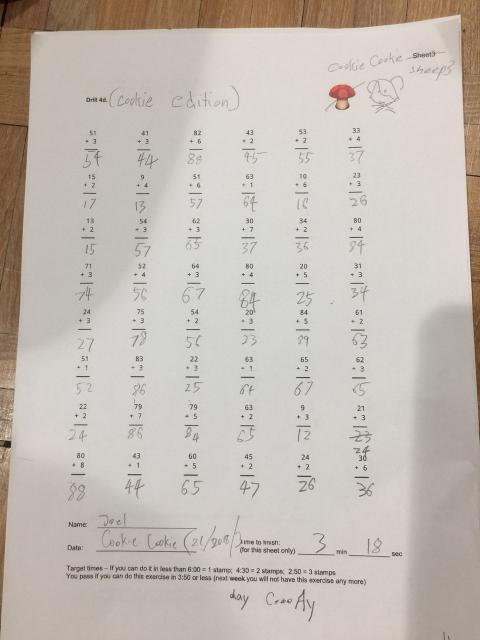 Cookie Cookie Sheet3
sheep3
Drill 4d. (cookie edition)
51 41 82 43 53 33
+ 3 + 3 + 6 + 2 + 2 + 4
54 44 88 45 55 37
15 9 51 63 10 23
+ 2 + 4 + 6 + 1 + 6 + 3
17 13 57 64 16 26
13 54 62 30 34 80
+ 2 + 3 + 3 + 7 + 2 + 4
15 57 65 37 36 84
71 52 64 80 20 31
+ 3 + 4 + 3 + 4 + 5 + 3
74 56 67 84 25 34
24 75 54 20 84 61
+ 3 + 3 + 2 + 3 + 5 + 2
27 78 56 23 89 63
51 83 22 63 65 62
+ 1 + 3 + 3 + 1 + 2 + 3
52 86 25 64 67 65
22 79 79 63 9 21
+ 2 + 7 + 5 + 2 + 3 + 3
24 86 84 65 12 23
24
80 43 60 45 24 30
+ 8 + 1 + 5 + 2 + 2 + 6
88 44 65 47 26 36
Name: Joel
Date: Cookie Cookie Time to finish: 3 min 18 sec
(for this sheet only)
Target times – If you can do it in less than 6:00 = 1 stamp; 4:30 = 2 stamps; 2:50 = 3 stamps
You pass if you can do this exercise in 3:50 or less (next week you will not have this exercise any more)
day